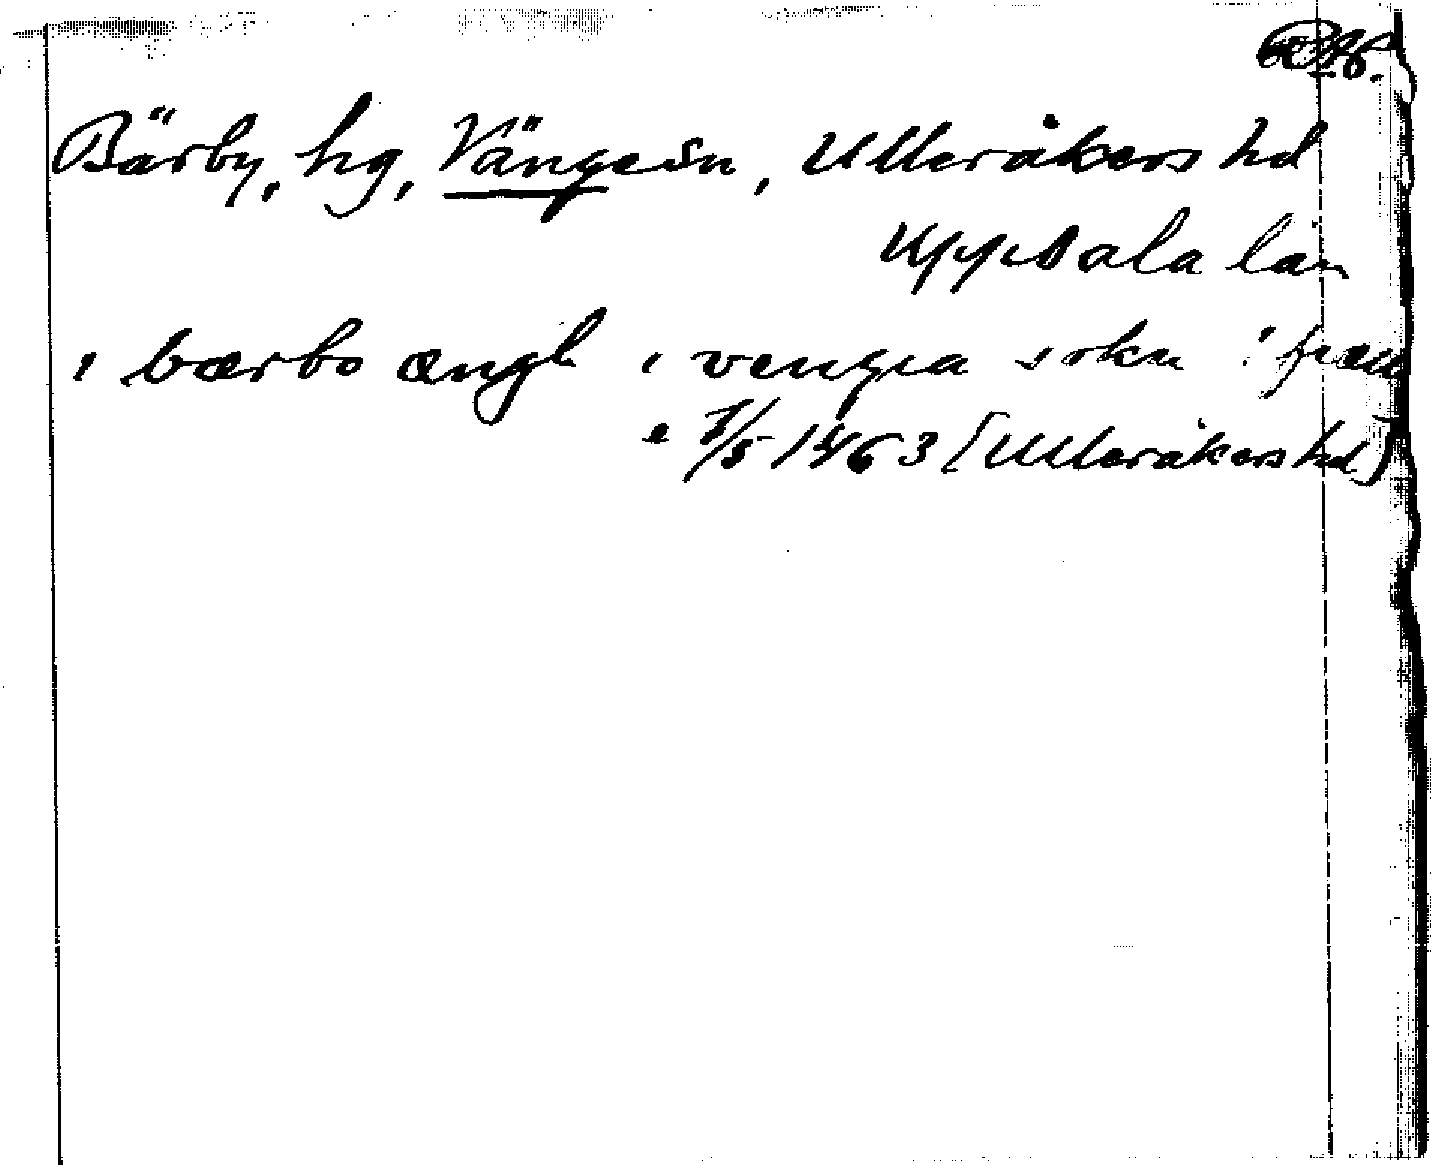 Bärby, hg, Vänge sn, Ulleråkers hd
Uppsala län
i bærbo ængh i vengia sokn i
7/5 1463 (Ulleråkers hd)